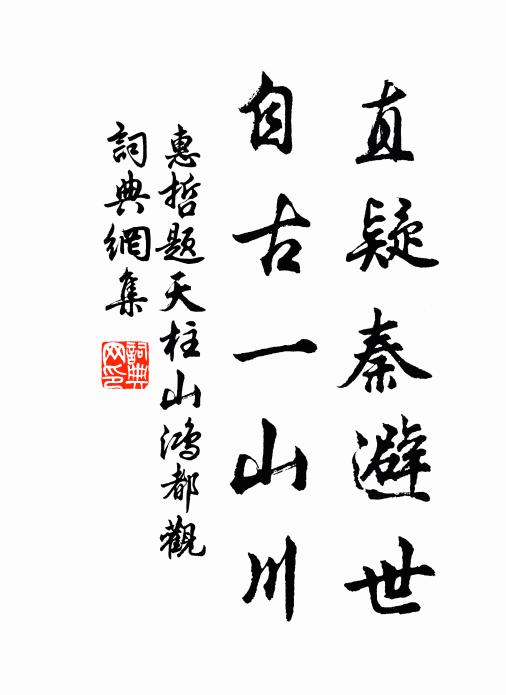 直疑秦避世
自古一山川
惠哲题天柱山鸿都觀
詞典網集
詞典网印